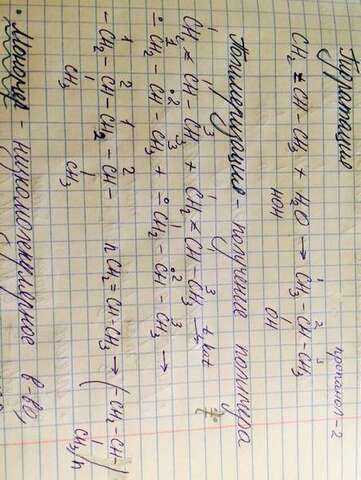 Гидратация
CH₂ ≠ CH – CH₃ + H₂O → CH₃ – CH – CH₃
HOH
OH
пропанол – 2
Полимеризация – получение полимера
CH₂ ≠ CH – CH₃ + CH₂ ≠ CH – CH₃ t, kat
– CH₂ – CH – CH₃ + – CH₂ – CH – CH₃ →
– CH₂ – CH – CH₂ – CH – n CH₂ = CH – CH₃ → (CH₂ – CH –)n
CH₃ CH₃ CH₃
• Мономер – низкомолекулярное в-во,